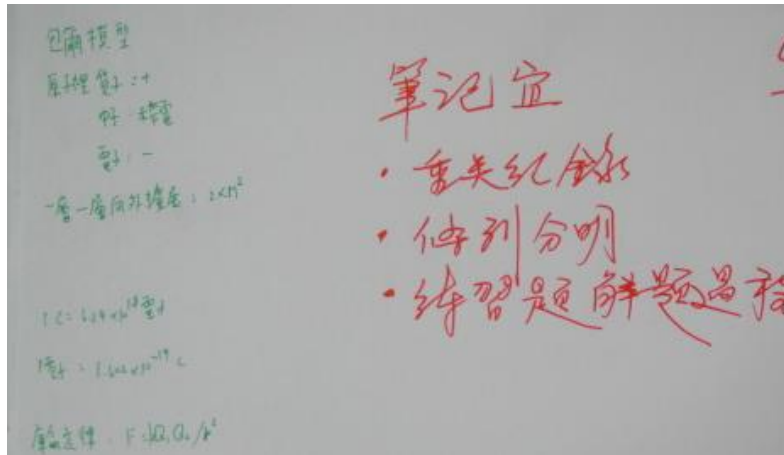 包爾模型
原子裡 質子：+
中子：不帶電
電子：-
一層一層向外擴展：2×n²
1C = 6.24×10¹⁸電子
1電子 = 1.602×10⁻¹⁹ C
庫侖定律 F=kQ₁Q₂/r²
筆記宜
• 重點紀錄
• 條列分明
• 練習題解題過程